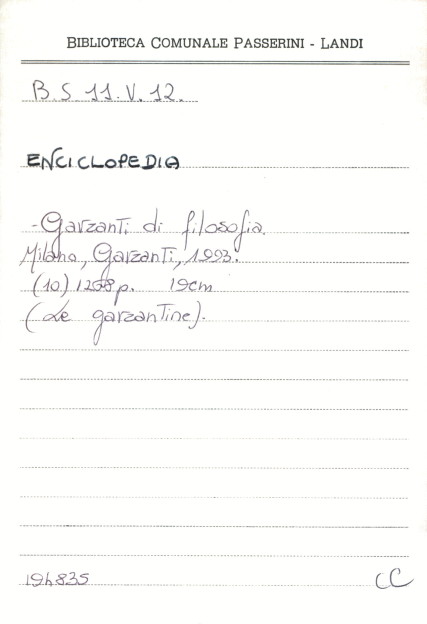 BIBLIOTECA COMUNALE PASSERINI - LANDI
B.S 11.V.12.
ENCICLOPEDIA
- Garzanti di filosofia.
Milano, Garzanti, 1993.
(10) p. 19cm
(Le garzantine).
194835
CC